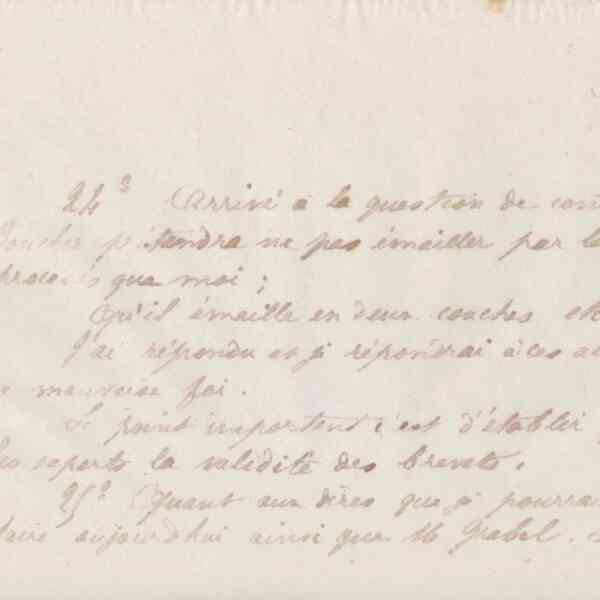 24° Arrivé à la question de con
prétendra ne pas émailler par le
procédés que moi ;
Qu'il émaille en deux couches et
J'ai répondu et je répondrai à ces
mauvaise foi.
Le point important c'est d'établir
les experts la validité des brevets,
25° Quant aux dires que je pourra
faire aujourd'hui ainsi que M Grabel.